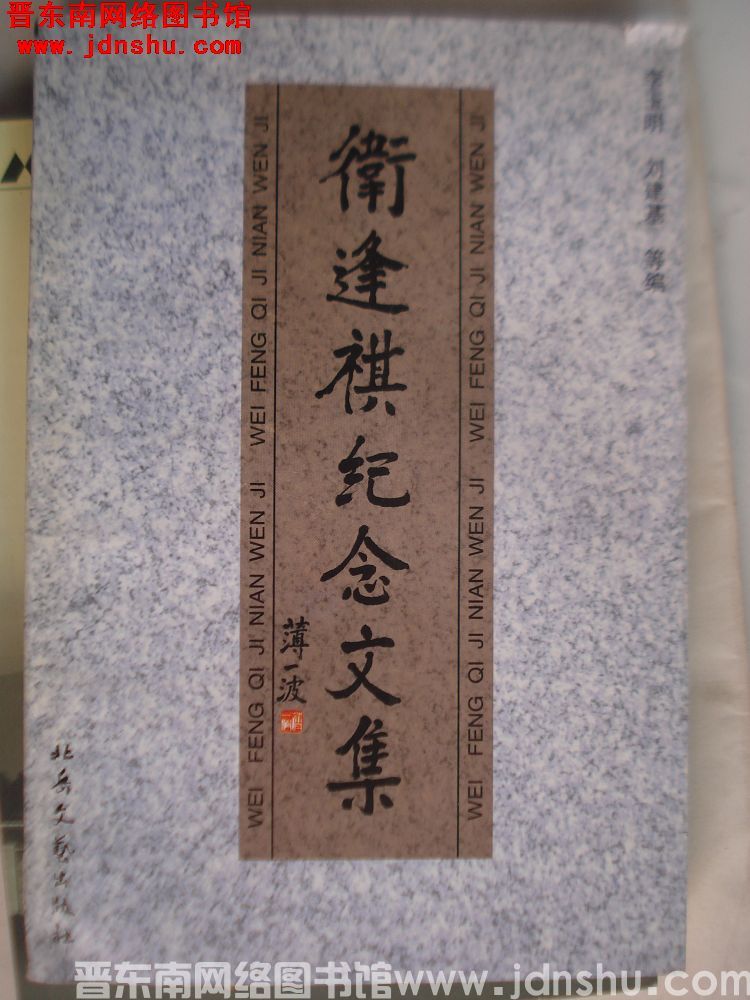 晋东南网络图书馆
www.jdnshu.com
李玉明 刘建基 等编
WEI FENG QI JI NIAN WEN JI WEI FENG QI JI NIAN WEN JI
衛逢祺纪念文集
薄一波
WEI FENG QI JI NIAN WEN JI WEI FENG QI JI NIAN WEN JI
北岳文艺出版社
晋东南网络图书馆www.jdnshu.com